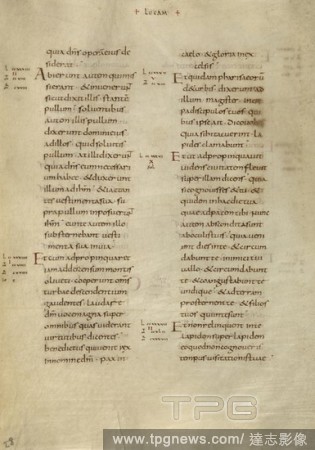 + LUCAM +
quia dn̄s opera eius de
siderat
Abierunt autem qui mis
si erant & inuenerunt
sicut dixit illis stantē
pullum soluentibus
autem illis pullum
dixerunt domini eius
ad illos quid soluitis
pullum at illi dixer̄
quia dn̄s eum necessari
um habet & duxerunt
illum ad ihm̄ & iactan
tes uestimenta sua su
pra pullum imposuer̄
ihm̄ eunte autem illo
substernebant uesti
menta sua in uia
Et cum adpropinquar&
iam ad descensum montis
oliueti coeperunt oms̄
turbae descendentium
gaudentes laudare
dm̄ uoce magna super
omnibus quas uiderant
uirtutibus dicentes
benedictus qui uenit rex
in nomine dn̄i pax in
caelo & gloria in ex
celsis
Et quidam pharisaeorū
de turbis dixerunt ad
illum magister incre
pa discipulos tuos qui
bus ipse ait dico uobis
quia si hi tacuerint la
pides clamabunt
Et ut adpropinquauit
uidens ciuitatem fleuit
super illam dicens quia
si cognouisses & tu &
quidem in hac die tua
quae ad pacem tibi nunc
autem abscondita sunt
ab oculis tuis quia ueni
ent dies in te & circum
dabunt te inimici tui
uallo & circumdabunt
te & coangustabunt te
undique & ad terram
prosternent te & filios
tuos qui in te sunt
Et non relinquent in te
lapidem super lapidem
eo quod non cognoueris
tempus uisitationis tuae
TPG
www.tpgnews.com / 達志影像